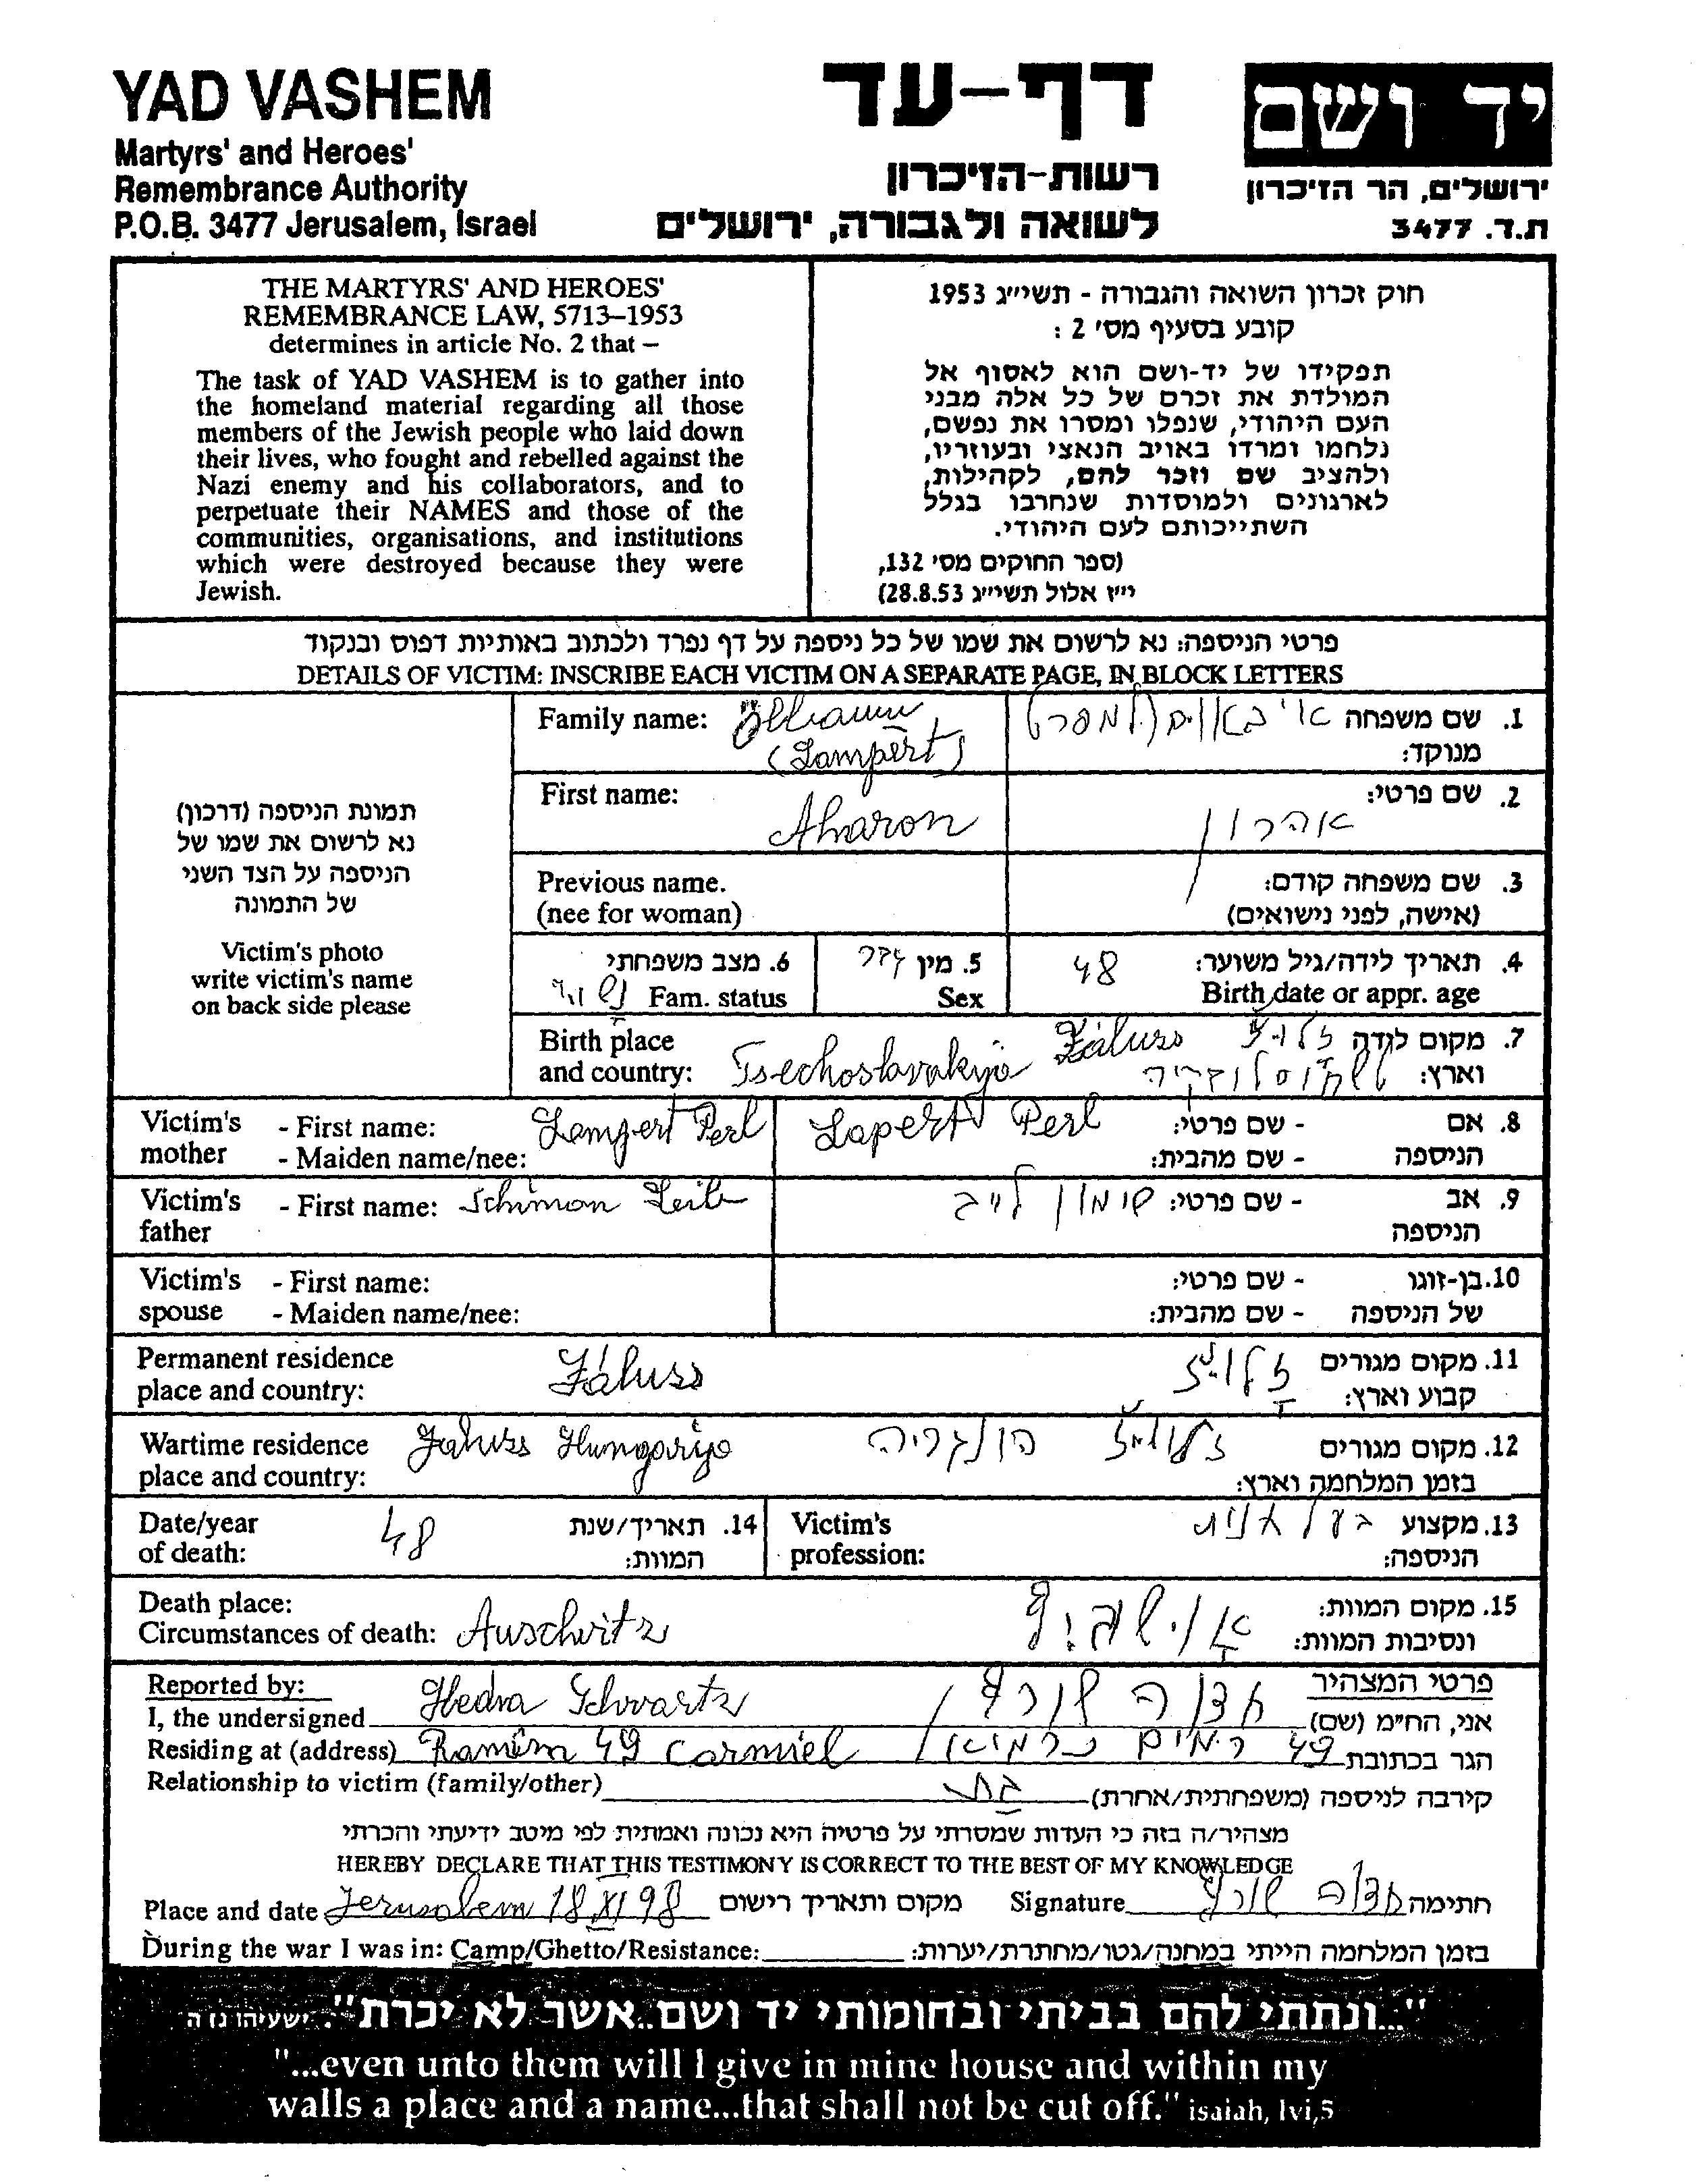 YAD VASHEM
Martyrs' and Heroes'
Remembrance Authority
P.O.B. 3477 Jerusalem, Israel
דף-עד
רשות-הזיכרון
לשואה ולגבורה, ירושלים
יד ושם
ירושלים, הר הזיכרון
ת.ד. 3477
THE MARTYRS' AND HEROES'
REMEMBRANCE LAW, 5713–1953
determines in article No. 2 that –
The task of YAD VASHEM is to gather into
the homeland material regarding all those
members of the Jewish people who laid down
their lives, who fought and rebelled against the
Nazi enemy and his collaborators, and to
perpetuate their NAMES and those of the
communities, organisations, and institutions
which were destroyed because they were
Jewish.
חוק זכרון השואה והגבורה - תשי״ג 1953
קובע בסעיף מס׳ 2 :
תפקידו של יד-ושם הוא לאסוף אל
המולדת את זכרם של כל אלה מבני
העם היהודי, שנפלו ומסרו את נפשם,
נלחמו ומרדו באויב הנאצי ובעוזריו,
ולהציב שם וזכר להם, לקהילות,
לארגונים ולמוסדות שנחרבו בגלל
השתייכותם לעם היהודי.
(ספר החוקים מס׳ 132,
י״ז אלול תשי״ג 28.8.53)
פרטי הניספה: נא לרשום את שמו של כל ניספה על דף נפרד ולכתוב באותיות דפוס ובנקוד
DETAILS OF VICTIM: INSCRIBE EACH VICTIM ON A SEPARATE PAGE, IN BLOCK LETTERS
תמונת הניספה (דרכון)
נא לרשום את שמו של
הניספה על הצד השני
של התמונה
Victim's photo
write victim's name
on back side please
Family name:
(Lampert)
1. שם משפחה
מנוקד:
First name: Aharon
2. שם פרטי: אהרון
Previous name.
(nee for woman)
3. שם משפחה קודם:
(אישה, לפני נישואים)
6. מצב משפחתי
Fam. status נשוי
5. מין זכר
Sex
4. תאריך לידה/גיל משוער: 48
Birth date or appr. age
Birth place
and country: Tsechoslovakyo Záluss
7. מקום לידה
וארץ:
Victim's - First name: Lampert Perl
mother - Maiden name/nee:
Lapert Perl
8. אם - שם פרטי:
הניספה - שם מהבית:
Victim's - First name: Schimon Leib
father
9. אב - שם פרטי: שמון לייב
הניספה
Victim's - First name:
spouse - Maiden name/nee:
10. בן-זוגו - שם פרטי:
של הניספה - שם מהבית:
Permanent residence
place and country: Záluss
11. מקום מגורים
קבוע וארץ:
Wartime residence
place and country: Zaluss Hungariyo
12. מקום מגורים הונגריה
בזמן המלחמה וארץ:
Date/year
of death: 48
14. תאריך/שנת
המוות:
Victim's
profession:
13. מקצוע
הניספה:
Death place:
Circumstances of death: Auschvitz
15. מקום המוות:
ונסיבות המוות:
Reported by:
I, the undersigned Hedva Schvartz
פרטי המצהיר
אני, החי״מ (שם) חדוה שורץ
Residing at (address) Ramim 49 Carmiel
הגר בכתובת 49 רמים כרמיאל
Relationship to victim (family/other)
קירבה לניספה (משפחתית/אחרת) בת
מצהיר/ה בזה כי העדות שמסרתי על פרטיה היא נכונה ואמתית לפי מיטב ידיעתי והכרתי
HEREBY DECLARE THAT THIS TESTIMONY IS CORRECT TO THE BEST OF MY KNOWLEDGE
Place and date Jerusalem 18 XI 98 מקום ותאריך רישום
Signature חדוה שורץ חתימה
During the war I was in: Camp/Ghetto/Resistance:
בזמן המלחמה הייתי במחנה/גטו/מחתרת/יערות:
"...ונתתי להם בביתי ובחומותי יד ושם..אשר לא יכרת". ישעיהו נו ה
"...even unto them will I give in mine house and within my
walls a place and a name...that shall not be cut off." isaiah, lvi,5